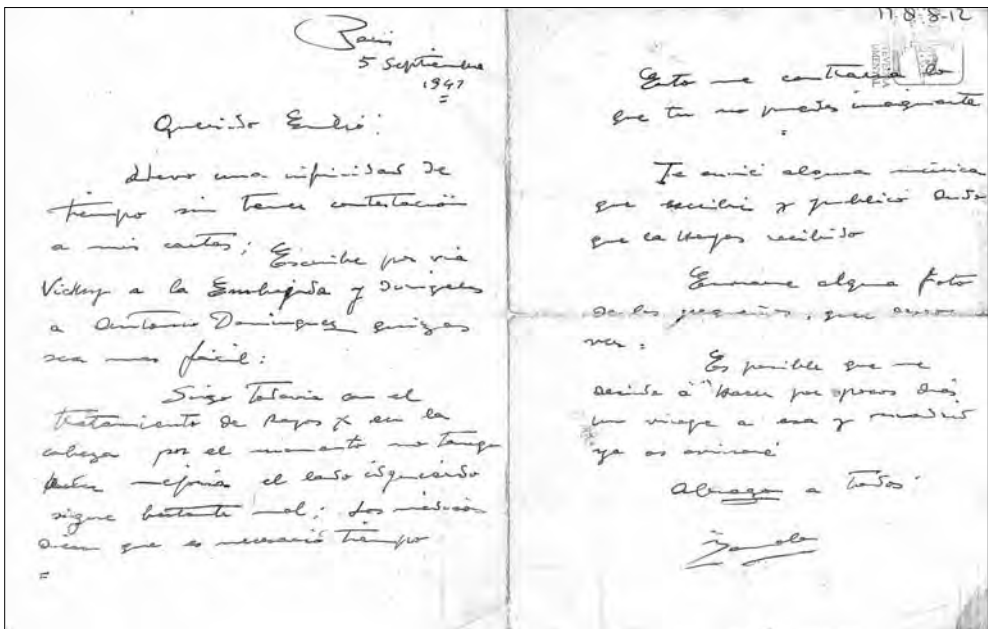 Paris
5 Septiembre
1941
=
Querido Emilio:
Llevo una infinidad de
tiempo sin tener contestación
a mis cartas; Escribe por via
Vichy a la Embajada y dirigela
a Antonio Dominguez quizas
sea mas fácil:
Sigo Todavia con el
tratamiento de Rayos X en la
cabeza por el momento no tengo
mejoria el lado izquierdo
sigue bastante mal; Los médicos
dicen que es necesario tiempo
=
17-8-8-12
Esto me contraria lo
que tu no puedes imaginarte
=
Te envié alguna música
que escribi y publico dudo
que la Hayas recibido
Enviame alguna foto
de los pequeños, que deseo
ver:
Es posible que me
decida á Hacer por pocos dias
un viage a esa y Madrid
ya os avisaré
Abrazos a Todos: